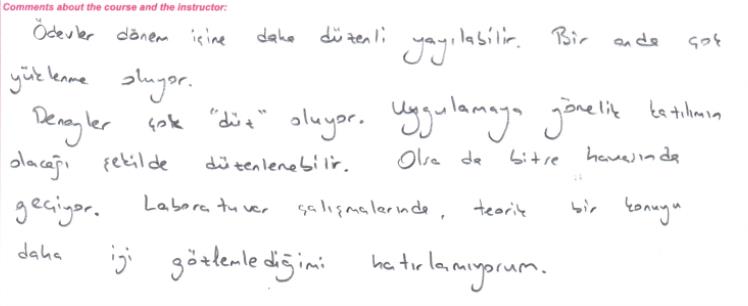 Comments about the course and the instructor:
Ödevler dönem içine daha düzenli yayılabilir. Bir anda çok
yüklenme oluyor.
Deneyler çok "düz" oluyor. Uygulamaya yönelik katılımın
olacağı şekilde düzenlenebilir. Olsa da bitse havasında
geçiyor. Laboratuvar çalışmalarında, teorik bir konuyu
daha iyi gözlemlediğimi hatırlamıyorum.